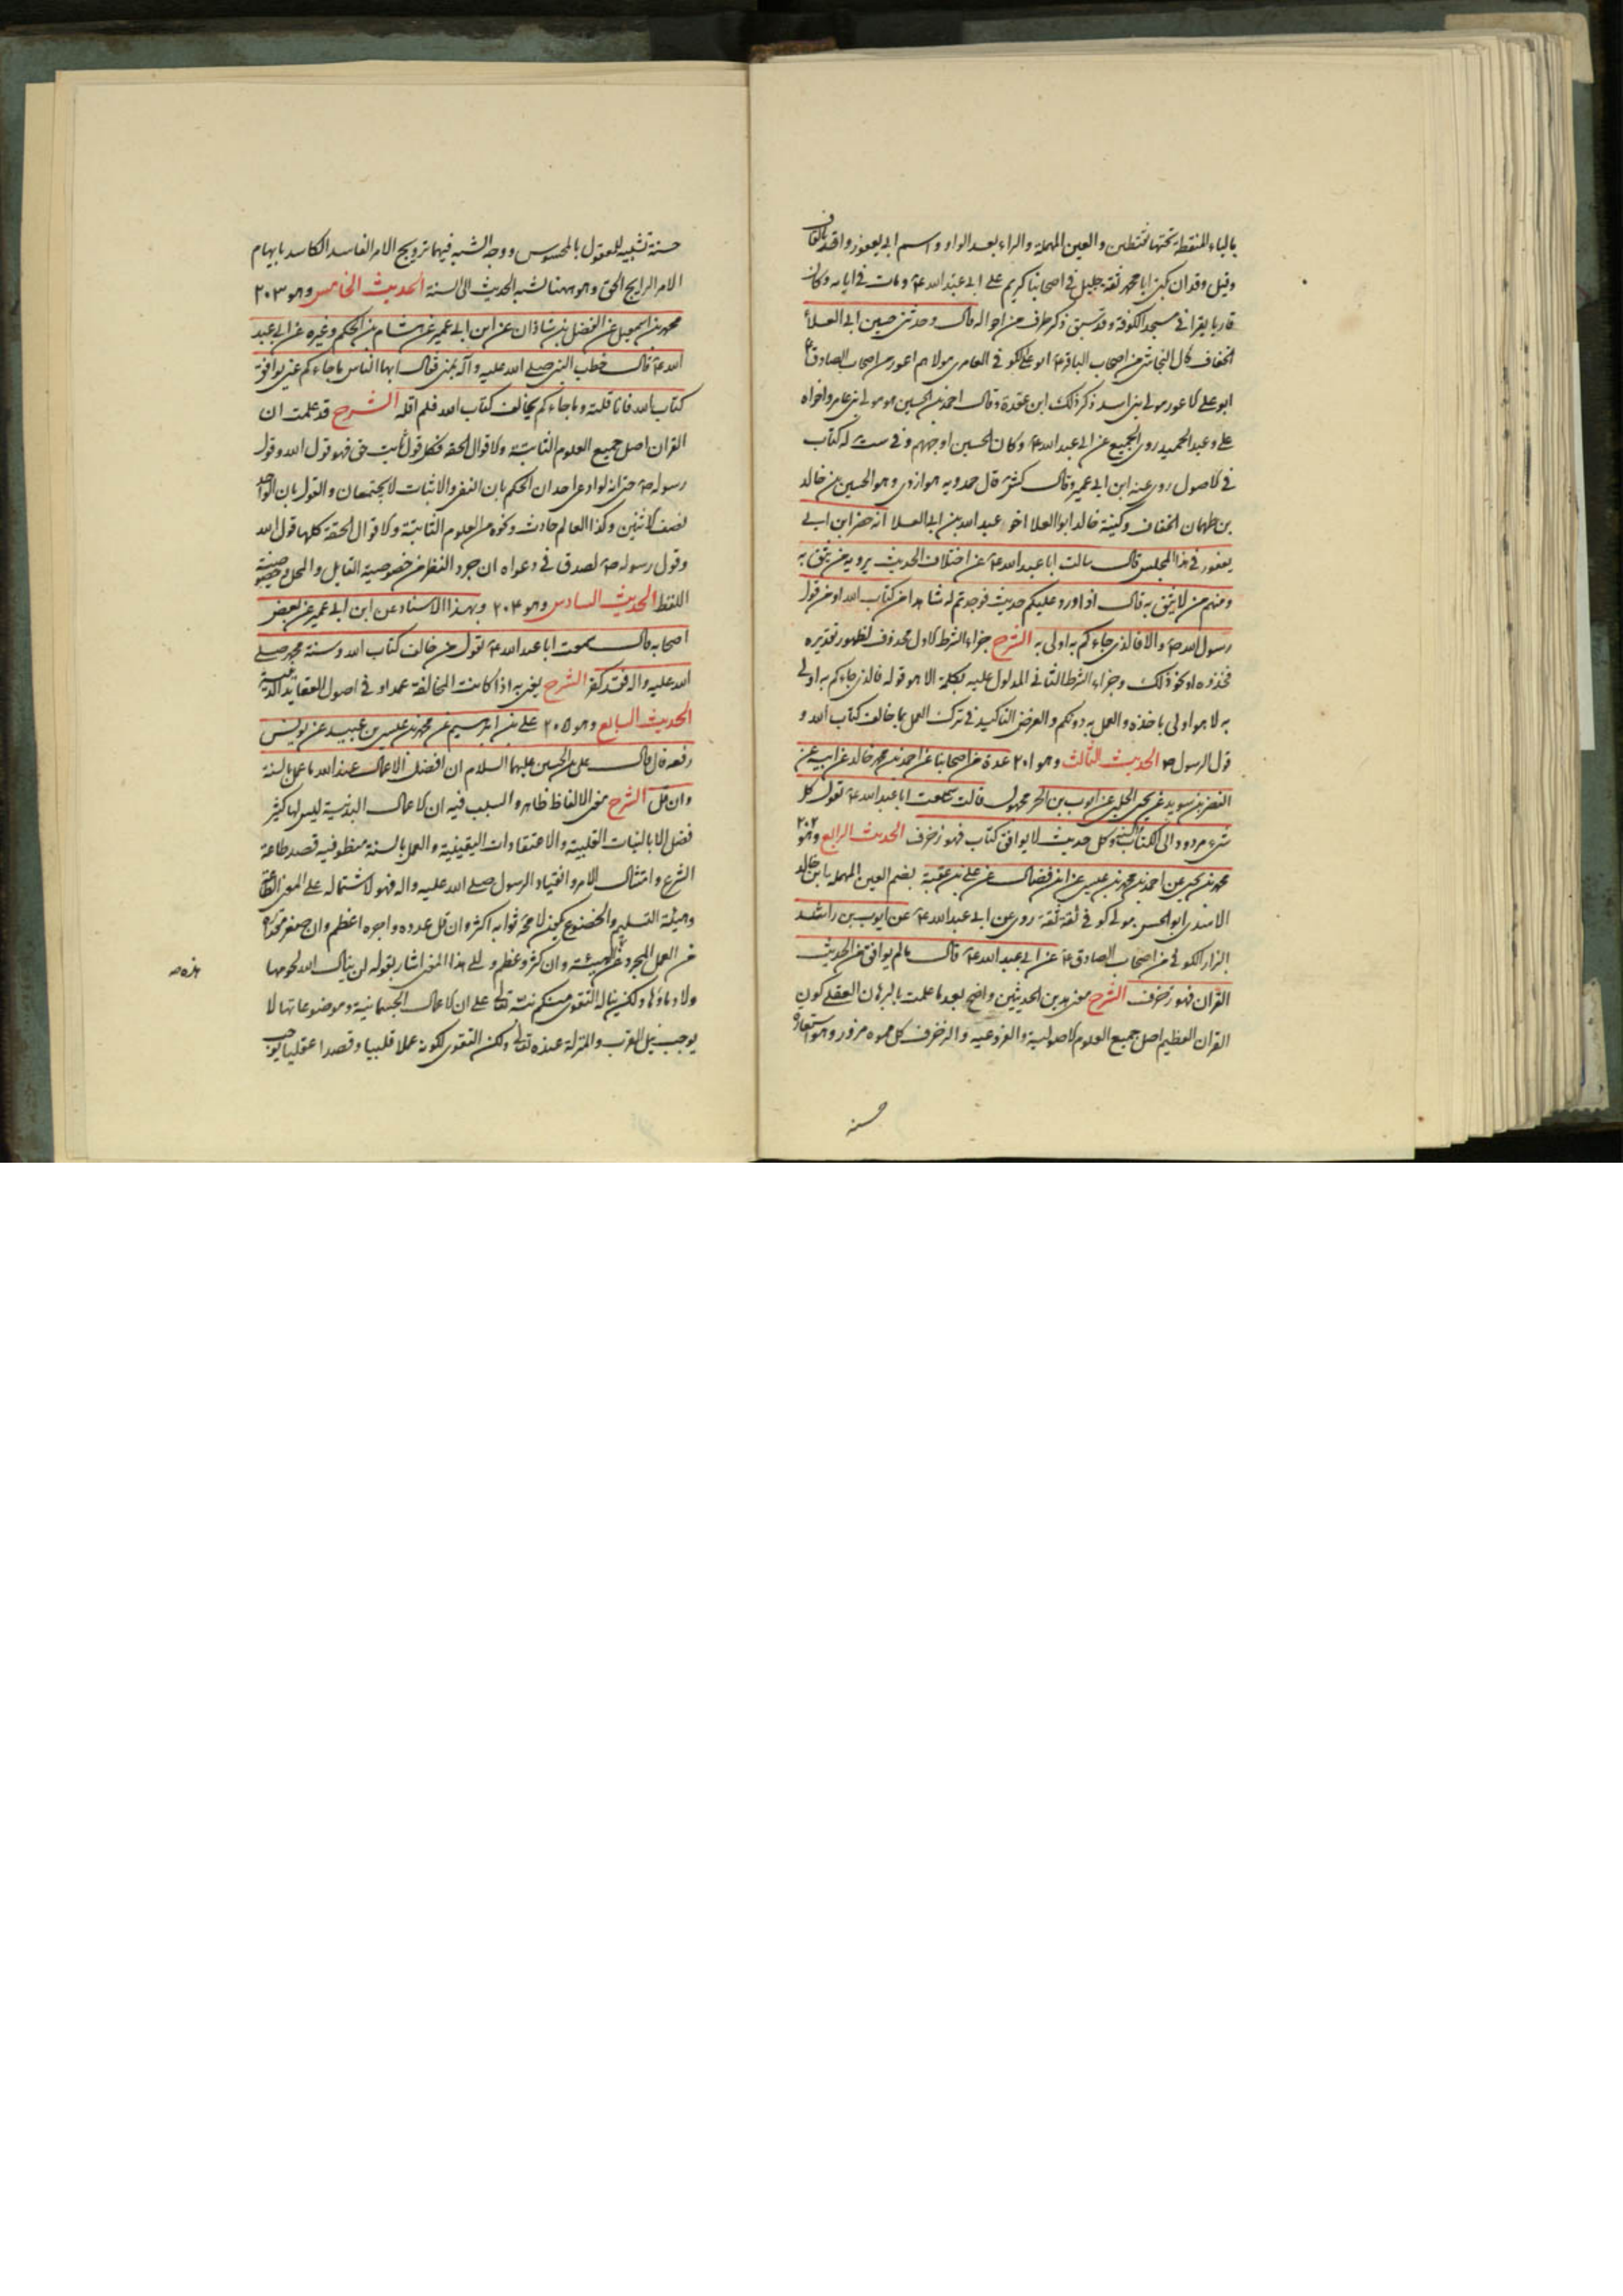 بالياء المنقطة تحتها نقطتين والعين المهملة والراء بعد الواو واسم ابي يعفور واقد بالقاف
وقيل وقدان يكنى ابا محمد ثقة جليل في اصحابنا كريم على ابي عبد الله ع ومات في ايامه وكان
قاريا يقرا في مسجد الكوفة وقد سبق ذكر طرف من احواله قال وحدثني حسين ابن ابي العلا
الخفاف قال النجاشي من اصحاب الباقر ع ابو علي الكوفي العامري مولاهم اعور من اصحاب الصادق ع
ابو علي الاعور مولى بني اسد ذكر ذلك ابن عقدة وقال احمد بن الحسين هو مولى بني عامر واخواه
علي وعبد الحميد روى الجميع عن ابي عبد الله ع وكان الحسين اوجههم وفي ست له كتاب
في الاصول روى عنه ابن ابي عمير وقال كش قال حمدويه هو ازدي وهو الحسين بن خالد
بن طهمان الخفاف وكنية خالد ابو العلا اخو عبد الله بن ابي العلا انه حضر ابن ابي
يعفور في هذا المجلس قال سالت ابا عبد الله ع عن اختلاف الحديث يرويه من نثق به
ومنهم من لا نثق به قال اذا ورد عليكم حديث فوجدتم له شاهدا من كتاب الله او من قول
رسول الله ص والا فالذي جاءكم به اولى به الشرح جزاء الشرط الاول محذوف لظهور تقديره
فخذوه او نحو ذلك وجزاء الشرط الثاني المدلول عليه بكلمة الا هو قوله فالذي جاءكم به اولى
به لا هو اولى باخذه والعمل به دونكم والغرض التاكيد في ترك العمل بما خالف كتاب الله و
قول الرسول ص الحديث الثالث وهو ٢٠١ عدة من اصحابنا عن احمد بن محمد خالد عن ابيه عن
النضر بن سويد عن يحيى الحلبي عن ايوب بن الحر مجهول قال سمعت ابا عبد الله ع يقول كل
شيء مردود الى الكتاب والسنة وكل حديث لا يوافق كتاب فهو زخرف الحديث الرابع وهو ٢٠٢
محمد بن يحيى عن احمد بن محمد بن عيسى عن ابن فضال عن علي بن عقبة بضم العين المهملة بن خالد
الاسدي ابو الحسن مولى كوفي ثقة ثقة روى عن ابي عبد الله ع عن ايوب بن راشد
البزاز الكوفي من اصحاب الصادق ع عن ابي عبد الله ع قال ما لم يوافق من الحديث
القران فهو زخرف الشرح معنى هذين الحديثين واضح بعد ما علمت بالبرهان العقلي كون
القران العظيم اصل جميع العلوم الاصولية والفروعية والزخرف كل مموه مزور وهو استعارة
حسنة
حسنة تشبيه للمعقول بالمحسوس ووجه الشبه فيهما ترويج الامر الفاسد الكاسد بايهام
الامر الرايج الحق وهو ههنا نسبة الحديث الى السنة الحديث الخامس وهو ٢٠٣
محمد بن اسمعيل عن الفضل بن شاذان عن ابن ابي عمير عن هشام بن الحكم وغيره عن ابي عبد
الله ع قال خطب النبي صلى الله عليه وآله بمنى فقال ايها الناس ما جاءكم عني يوافق
كتاب الله فانا قلته وما جاءكم يخالف كتاب الله فلم اقله الشرح قد علمت ان
القران اصل جميع العلوم الثابتة والاقوال الحقة فكل قول ثابت حق فهو قول الله وقول
رسوله ص حتى انه لو ادعى احد ان الحكم بان النفي والاثبات لا يجتمعان والقول بان الواحد
نصف الاثنين وكذا العالم حادث ونحوه من العلوم الثابتة والاقوال الحقة كلها قول الله
وقول رسوله ص لصدق في دعواه ان جرد النظر عن خصوصية القايل والمحل وخصوصية
اللفظ الحديث السادس وهو ٢٠٤ وبهذا الاسناد عن ابن ابي عمير عن بعض
اصحابه قال سمعت ابا عبد الله ع يقول من خالف كتاب الله وسنة محمد صلى
الله عليه واله فقد كفر الشرح يعني به اذا كانت المخالفة عمدا او في اصول العقايد الدينية
الحديث السابع وهو ٢٠٥ علي بن ابرهيم عن محمد بن عيسى بن عبيد عن يونس
رفعه قال قال علي بن الحسين عليهما السلام ان افضل الاعمال عند الله ما عمل بالسنة
وان قل الشرح معنى الالفاظ ظاهر والسبب فيه ان الاعمال البدنية ليس لها كثير
فضل الا بالنيات القلبية والاعتقادات اليقينية والعمل بالسنة منظو فيه قصد طاعة
الشرع وامتثال الامر وانقياد الرسول صلى الله عليه واله فهو لاشتماله على المعنى
وهيئة التسليم والخضوع يكون لا محة ثوابه اكثر وان قل عدده واجره اعظم وان صغر مقداره
من العمل المجرد عن الهيئة وان كثر وعظم والى هذا المعنى اشار بقوله لن ينال الله لحومها
ولا دماؤها ولكن يناله التقوى منكم نبه تعالى على ان الاعمال الجسمانية وموضوعاتها لا
يوجب نيل القرب والمنزلة عنده تعالى ولكن التقوى لكونه عملا قلبيا وقصدا عقليا يوجب
هذه صه